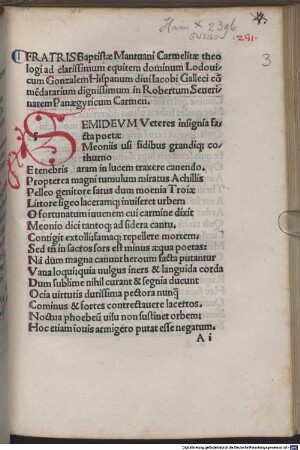 Hain × 2396
291
3
FRATRIS Baptistæ Mantuani Carmelitæ theo
logi ad clarissimum equitem dominum Lodoui
cum Gonzalem Hispanum diui Iacobi Galleci cō
mēdatarium dignissimum in Robertum Seueri
natem Panægyricum Carmen.
SEMIDEVM Veteres insignia fa
cta poetæ
Meoniis usi fidibus grandiq; co
thurno
E tenebris aram in lucem traxere canendo.
Propterea magni tumulum miratus Achillis
Pelleo genitore satus dum moenia Troiæ
Littore sigeo laceramq; inuiseret urbem
O fortunatum iuuenem cui carmine dixit
Meonio dici tantoq; ad sidera cantu.
Contigit extollisfamaq; repellere mortem.
Sed tñ in sacros fors est minus æqua poetas:
Nā dum magna canunt heroum facta putantur
Vana loqui:quia uulgus iners & languida corda
Dum sublime nihil curant & segnia ducunt
Ocia uirtutis durissima pectora nunq̄
Cominus & fortes contrectauere lacertos.
Noctua phoebeū uisu non sustinet orbem:
Hoc etiam iouis armigero putat esse negatum.
A i